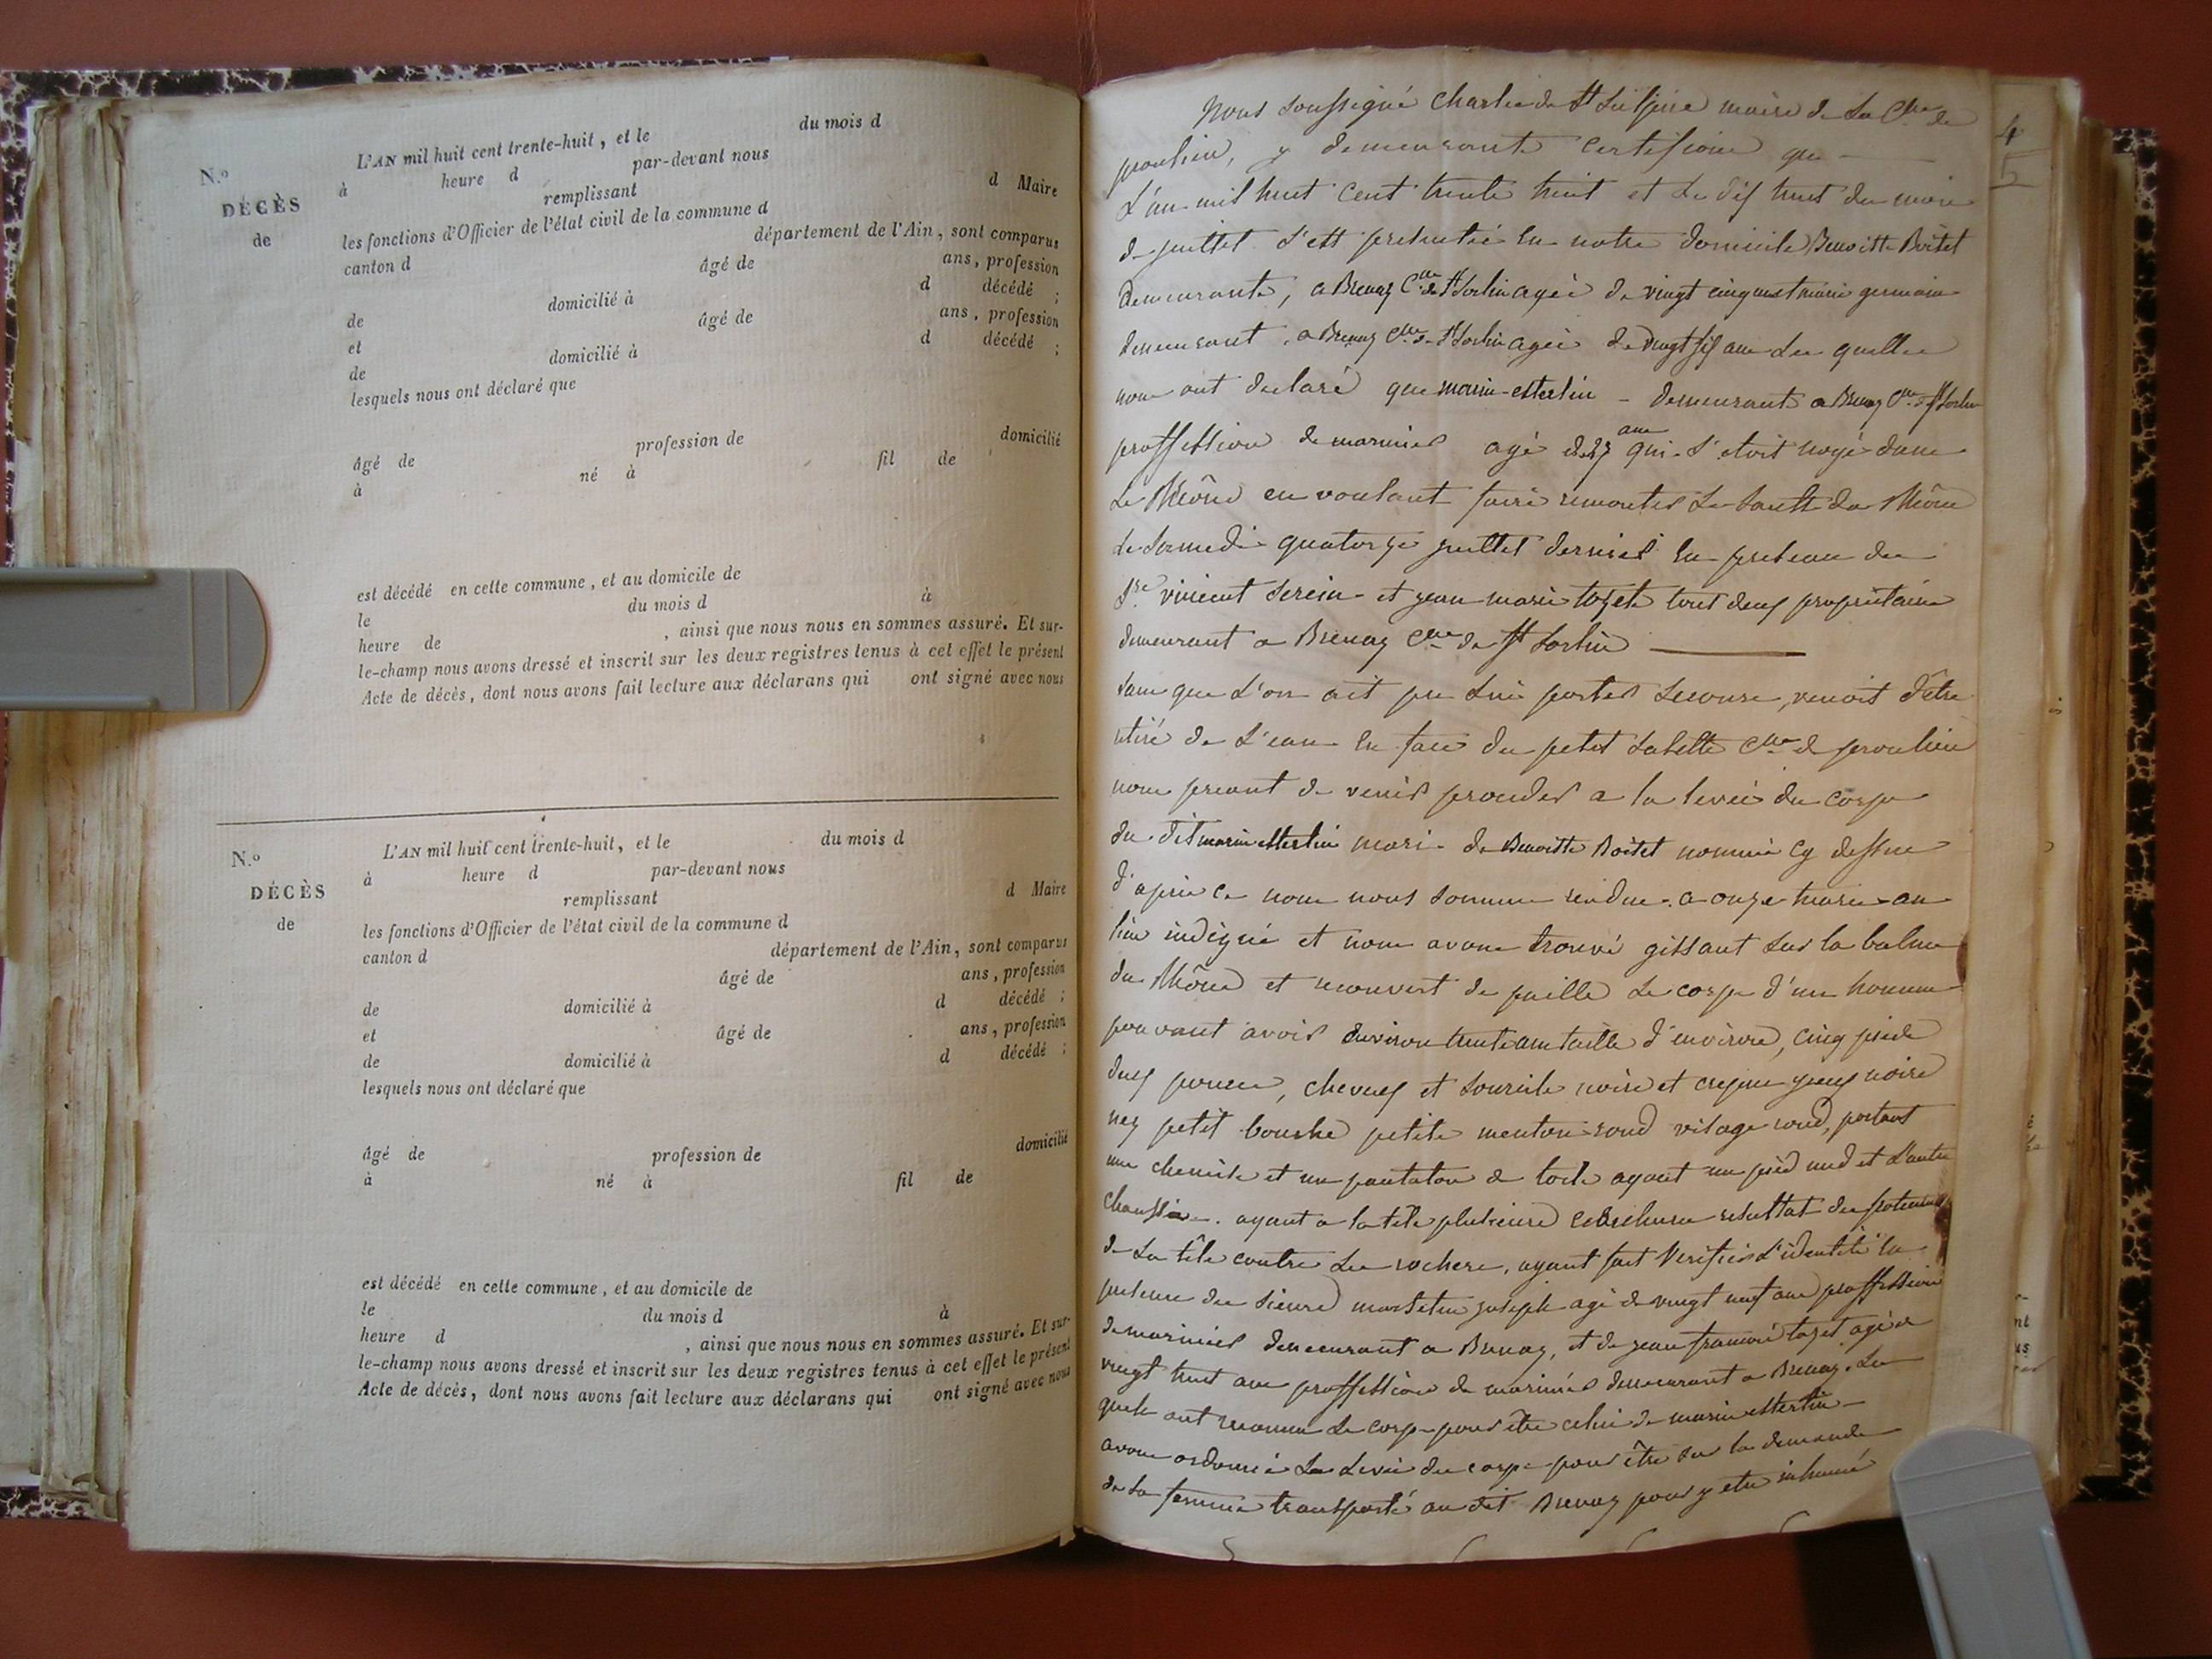 N.º
DÉCÈS
de
L'AN mil huit cent trente-huit, et le du mois d
à heure d par-devant nous
remplissant d Maire
les fonctions d'Officier de l'état civil de la commune d
canton d département de l'Ain, sont comparus
âgé de ans, profession
de domicilié à d décédé ;
et âgé de ans, profession
de domicilié à d décédé ;
lesquels nous ont déclaré que
âgé de profession de domicilié
à né à fil de
est décédé en cette commune, et au domicile de
le du mois d à
heure de , ainsi que nous nous en sommes assuré. Et sur-
le-champ nous avons dressé et inscrit sur les deux registres tenus à cet effet le présent
Acte de décès, dont nous avons fait lecture aux déclarans qui ont signé avec nous
N.º
DÉCÈS
de
L'AN mil huit cent trente-huit, et le du mois d
à heure d par-devant nous
remplissant d Maire
les fonctions d'Officier de l'état civil de la commune d
canton d département de l'Ain, sont comparus
âgé de ans, profession
de domicilié à d décédé ;
et âgé de ans, profession
de domicilié à d décédé ;
lesquels nous ont déclaré que
âgé de profession de domicilié
à né à fil de
est décédé en cette commune, et au domicile de
le du mois d à
heure d , ainsi que nous nous en sommes assuré. Et sur-
le-champ nous avons dressé et inscrit sur les deux registres tenus à cet effet le présent
Acte de décès, dont nous avons fait lecture aux déclarans qui ont signé avec nous
Nous soussigné Charles de St Sulpice maire de la Cne de
proulieu, y demeurante certifions que
L'an mil huit cent trente huit et le dix huit du mois
de juillet s'est presentée en notre domicile Benoitte Boitet
demeurante, a Brenaz Cne de St Sorlin agée de vingt cinq
demeurant, a Brenaz Cne de St Sorlin agée de vingt six ans les quelles
nous ont declaré que marin esterlin - demeurante a Brenaz Cne de St Sorlin
proffession de marinier agé de ans qui s'etoit noyé dans
Le Rhône en voulant faire remonter Le Sault du Rhône
le Samedi quatorze juillet dernier en presence des
Srs vincent Serein et jean marie tozet tout deux proprietaire
demeurant a Brenaz Cne de St Sorlin
sans que l'on ait pu lui porter Secours, venoit d'etre
retiré de L'eau en face du petit Cne de proulieu
nous priant de venir proceder a la levée du corps
du dit marin esterlin mari de Benoitte Boitet nommée cy dessus
d'après ce nous nous sommes rendus a onze heures au
lieu indiqué et nous avons trouvé gissant sur la balme
du Rhône et recouvert de paille Le corps d'un homme
pouvant avoir environ trente ans taille d'environ, cinq pieds
deux pouces, cheveux et sourcils noirs et crepus yeux noirs
nez petit bouche petite menton rond visage rond, portant
une chemise et un pantalon de toile ayant un pied nud et L'autre
chaussé. ayant a la tête plusieurs resultat des
de La tête contre Les rochers, ayant fait Verifier L'identité en
presence des Sieurs joseph agé de vingt neuf ans proffession
de marinier demeurant a Brenaz, et de jean françois tozet agé de
vingt huit ans proffession de marinier demeurant a Brenaz. Les
quels ont reconnu Le corps pour être celui de marin esterlin
avons ordonné La Levée du corps pour être sur la demande
de sa femme transporté au dit Brenaz pour y etre inhumé
4
5